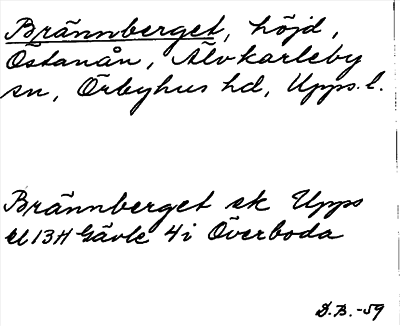 Brännberget, höjd,
Östanån, Älvkarleby
sn, Örbyhus hd, Upps. l.
Brännberget ek Upps
bl 13H Gävle 4i Överboda
D.B. -59